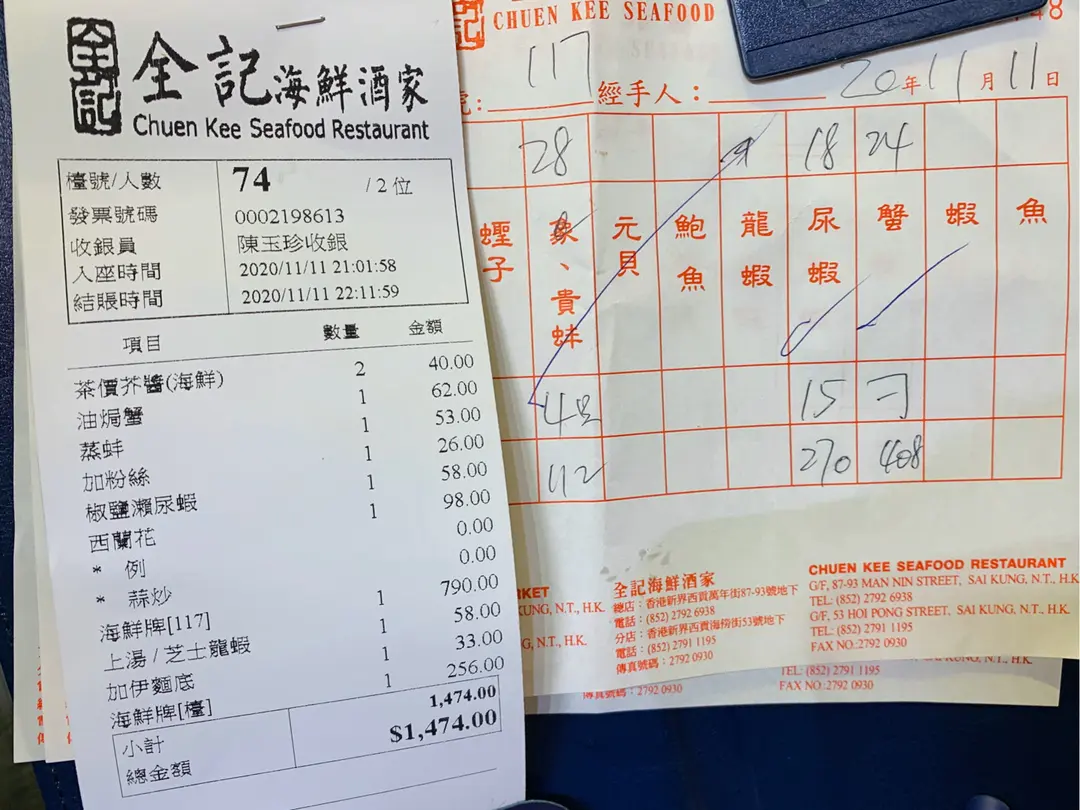 全記
全記海鮮酒家
Chuen Kee Seafood Restaurant
檯號/人數 74 /2 位
發票號碼 0002198613
收銀員 陳玉珍收銀
入座時間 2020/11/11 21:01:58
結賬時間 2020/11/11 22:11:59
項目 數量 金額
茶價芥醬(海鮮) 2 40.00
油焗蟹 1 62.00
蒸蚌 1 53.00
加粉絲 1 26.00
椒鹽瀨尿蝦 1 58.00
西蘭花 1 98.00
* 例 0.00
* 蒜炒 0.00
海鮮牌[117] 1 790.00
上湯/芝士龍蝦 1 58.00
加伊麵底 1 33.00
海鮮牌[檯] 1 256.00
小計 1,474.00
總金額 $1,474.00
CHUEN KEE SEAFOOD
117
號: 經手人: 20年11月11日
28 18 24
蟶子 象、貴蚌 元貝 鮑魚 龍蝦 尿蝦 蟹 蝦 魚
4 15
112 270 408
全記海鮮酒家
總店:香港新界西貢萬年街87-93號地下
電話:(852) 2792 6938
分店:香港新界西貢海傍街53號地下
電話:(852) 2791 1195
傳真號碼:2792 0930
CHUEN KEE SEAFOOD RESTAURANT
G/F, 87-93 MAN NIN STREET, SAI KUNG, N.T., H.K
TEL: (852) 2792 6938
G/F, 53 HOI PONG STREET, SAI KUNG, N.T., H.K.
TEL: (852) 2791 1195
FAX NO.:2792 0930
KUNG, N.T., H.K.
G, N.T., H.K.
傳真號碼:2792 0930
TEL: (852) 2791 1195
FAX NO.:2792 0930